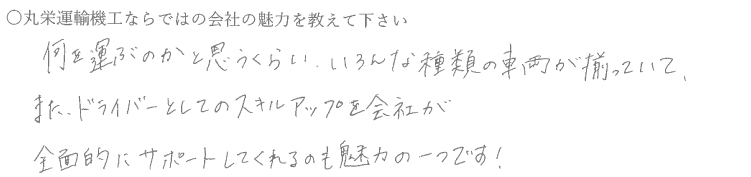 ○丸栄運輸機工ならではの会社の魅力を教えて下さい
何を運ぶのかと思うくらい、いろんな種類の車両が揃っていて、
また、ドライバーとしてのスキルアップを会社が
全面的にサポートしてくれるのも魅力の一つです!